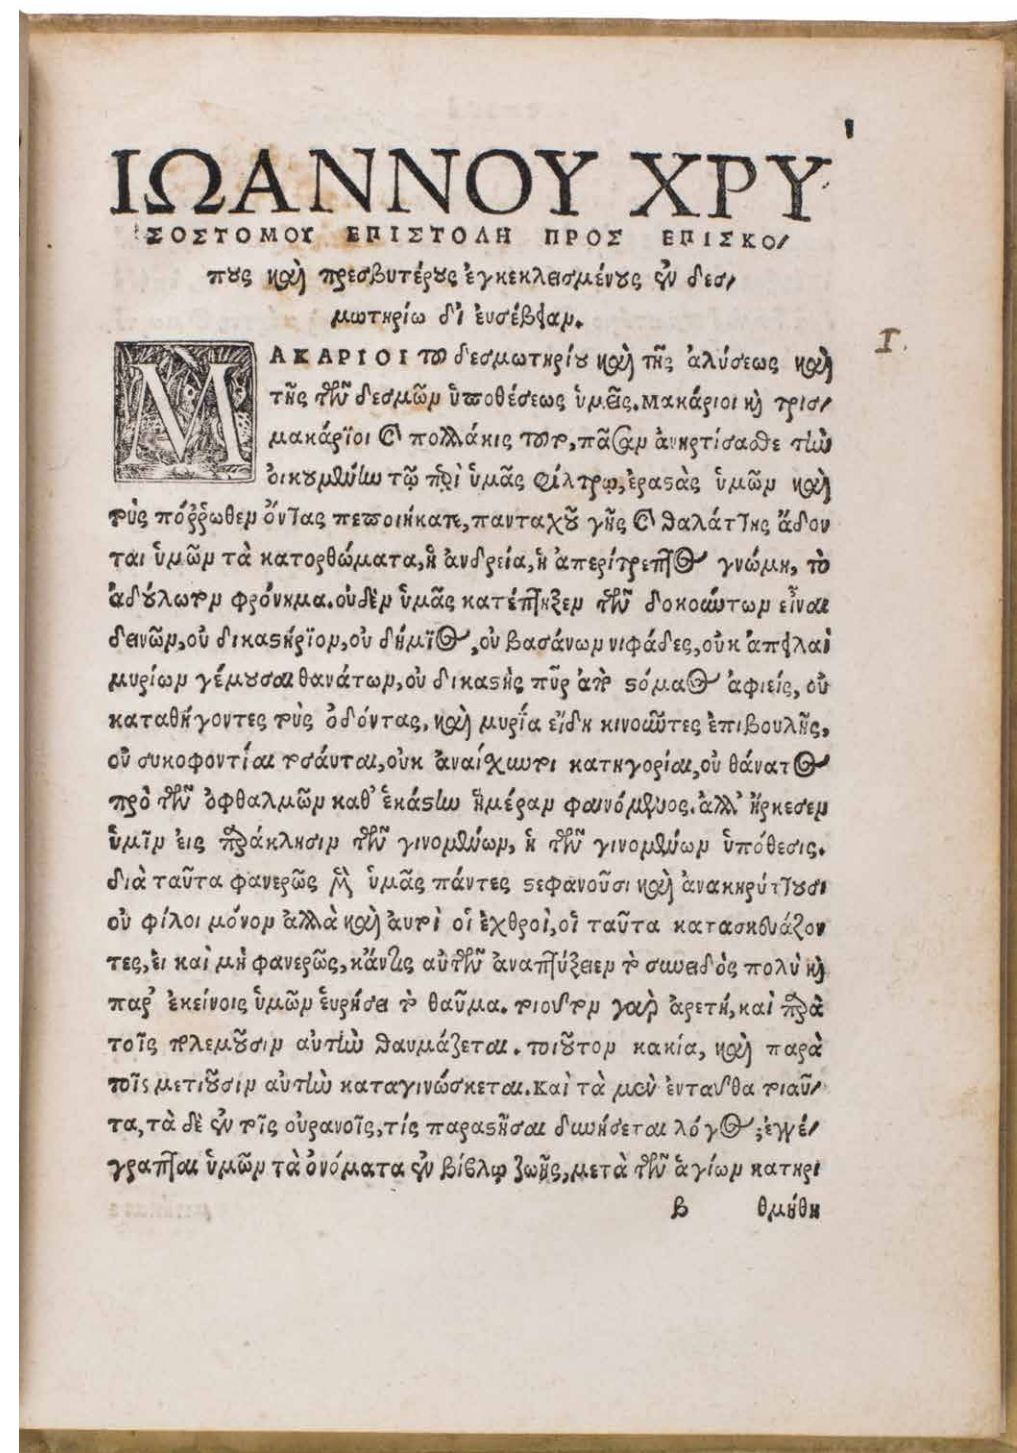 ΙΩΑΝΝΟΥ ΧΡΥ
ΣΟΣΤΟΜΟΥ ΕΠΙΣΤΟΛΗ ΠΡΟΣ ΕΠΙΣΚΟ/
πους καὶ πρεσβυτέρους ἐγκεκλεισμένους ἐν δεσ/
μωτηρίω δἰ ἐυσέβειαν.
I.
ΜΑΚΑΡΙΟΙ τοῦ δεσμωτηρίου καὶ τῆς ἁλύσεως καὶ
τῆς τῶν δεσμῶν ὑποθέσεως ὑμεῖς. μακάριοι καὶ τρισ/
μακάριοι καὶ πολλάκις τοῦτο, πᾶσαν ἀνηρτίσασθε τὴν
ὀικουμένην τῷ περὶ ὑμᾶς φίλτρῳ, ἐραστὰς ὑμῶν καὶ
τοὺς πόῤῥωθεν ὄντας πεποιήκατε, πανταχοῦ γῆς καὶ θαλάττης ἄδον
ται ὑμῶν τὰ κατορθώματα, ἡ ἀνδρεία, ἡ ἀπερίτρεπτος γνώμη, τὸ
ἀδούλωτον φρόνημα. οὐδὲν ὑμᾶς κατέπτηξεν τῶν δοκούντων εἶναι
δεινῶν, οὐ δικαστήριον, οὐ δήμιος, οὐ βασάνων νιφάδες, οὐκ ἀπειλαὶ
μυρίων γέμουσαι θανάτων, οὐ δικαστὴς πῦρ ἀπὸ στόματος ἀφιείς, οὐ
καταθήγοντες τοὺς ὀδόντας, καὶ μυρία εἴδη κινοῦντες ἐπιβουλῆς,
οὐ συκοφοντίαι τοσάυται, οὐκ ἀναίσχυντοι κατηγορίαι, οὐ θάνατος
πρὸ τῶν ὀφθαλμῶν καθ' ἑκάστην ἡμέραν φαινόμενος. ἀλλ' ἤρκεσεν
ὑμῖν εἰς παράκλησιν τῶν γινομένων, ἡ τῶν γινομένων ὑπόθεσις.
διὰ ταῦτα φανερῶς μὲν ὑμᾶς πάντες στεφανοῦσι καὶ ἀνακηρύττουσι
οὐ φίλοι μόνον ἀλλὰ καὶ ἀυτοὶ οἱ ἐχθροὶ, οἱ ταῦτα κατασκευάζον
τες, ἐι καὶ μὴ φανερῶς, κἄν τις αὐτῶν ἀναπτύξειεν τὸ συνειδὸς πολὺ καὶ
παρ' ἐκείνοις ὑμῶν ἑυρήσει τὸ θαῦμα. τοιοῦτον γὰρ ἀρετή, καὶ παρὰ
τοῖς πολεμοῦσιν αὐτὴν θαυμάζεται. τοιοῦτον κακία, καὶ παρὰ
τοῖς μετιοῦσιν αὐτὴν καταγινώσκεται. Καὶ τὰ μὲν ἐνταῦθα τοιαῦ/
τα, τὰ δὲ ἐν τοῖς οὐρανοῖς, τίς παραστῆσαι δυνήσεται λόγος; ἐγγέ/
γραπται ὑμῶν τὰ ὀνόματα ἐν βίβλῳ ζωῆς, μετὰ τῶν ἁγίων κατηρι
β θμήθη